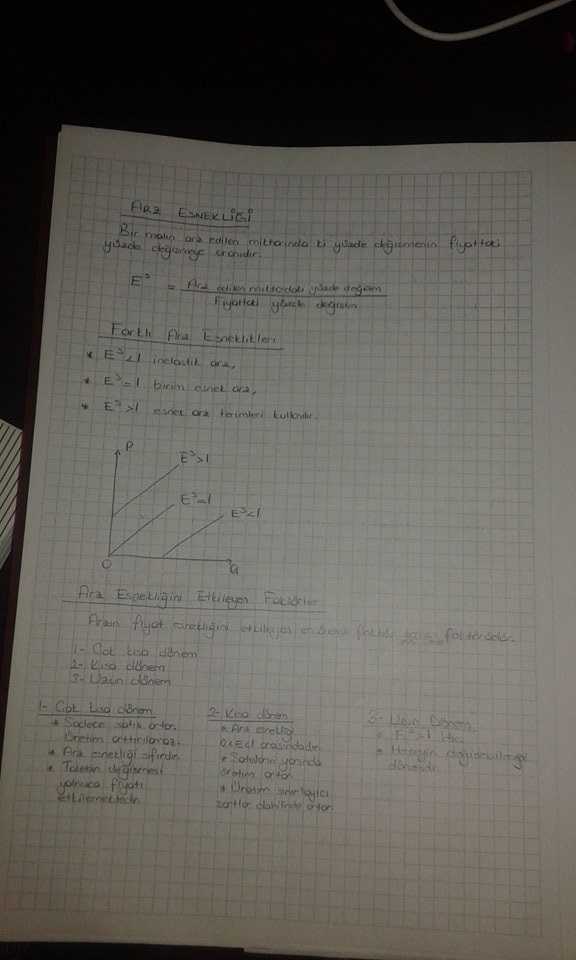 ARZ ESNEKLİĞİ
Bir malın arz edilen miktarında ki yüzde değişmenin fiyattaki
yüzde değişmeye oranıdır.
E^s = Arz edilen miktardaki yüzde değişim
Fiyattaki yüzde değişim
Farklı Arz Esneklikleri
* E^s<1 inelastik arz,
* E^s=1 birim esnek arz,
* E^s>1 esnek arz terimleri kullanılır.
P
E^s>1
E^s=1
E^s<1
O
Q
Arz Esnekliğini Etkileyen Faktörler
Arzın fiyat esnekliğini etkileyen en önemli faktör faktörüdür.
1- Çok kısa dönem
2- Kısa dönem
3- Uzun dönem
1- Çok kısa dönem
* Sadece satış artar.
Üretim arttırılamaz.
* Arz esnekliği sıfırdır.
* Talebin değişmesi
yalnızca fiyatı
etkilemektedir.
2- Kısa dönem
* Arz esnekliği
0<E<1 arasındadır.
* Satışların yanında
üretim artar.
* Üretim sınırlayıcı
şartlar dahilinde artar.
3- Uzun Dönem
* E^s>1 'dir.
* Herşeyin değişebilmeği
dönemdir.